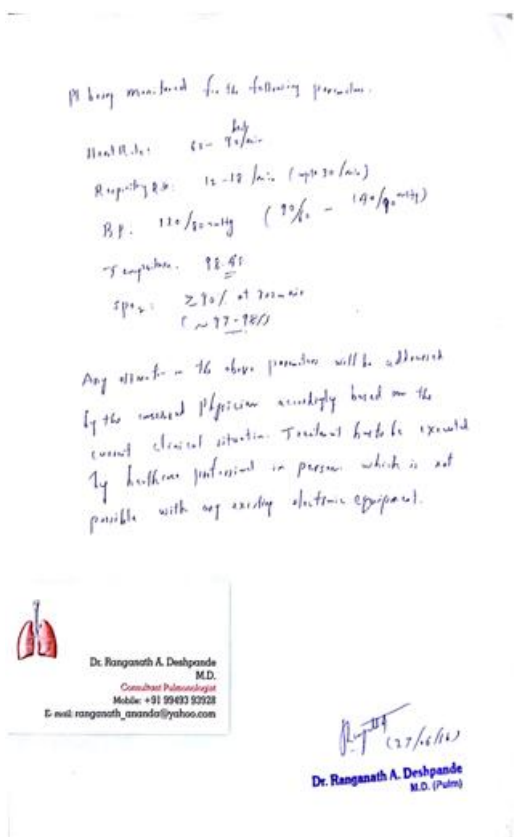 Pt being monitored for the following parameters.
Heart Rate: 60 - 90/min
beats
Respiratory Rate: 12-18 /min (upto 30/min)
BP: 120/80 mmHg (90/60 - 140/90 mmHg)
Temperature: 98.
SpO2: ≥90% at room air
(~97-98%)
Any in the above parameters will be addressed
by the concerned Physician accordingly based on the
current clinical situation. Treatment has to be executed
by healthcare professional in person which is not
possible with any existing electronic equipment.
Dr. Ranganath A. Deshpande
M.D.
Consultant Pulmonologist
Mobile: +91 99493 93928
E-mail: ranganath_ananda@yahoo.com
(27/06/16)
Dr. Ranganath A. Deshpande
M.D. (Pulm)